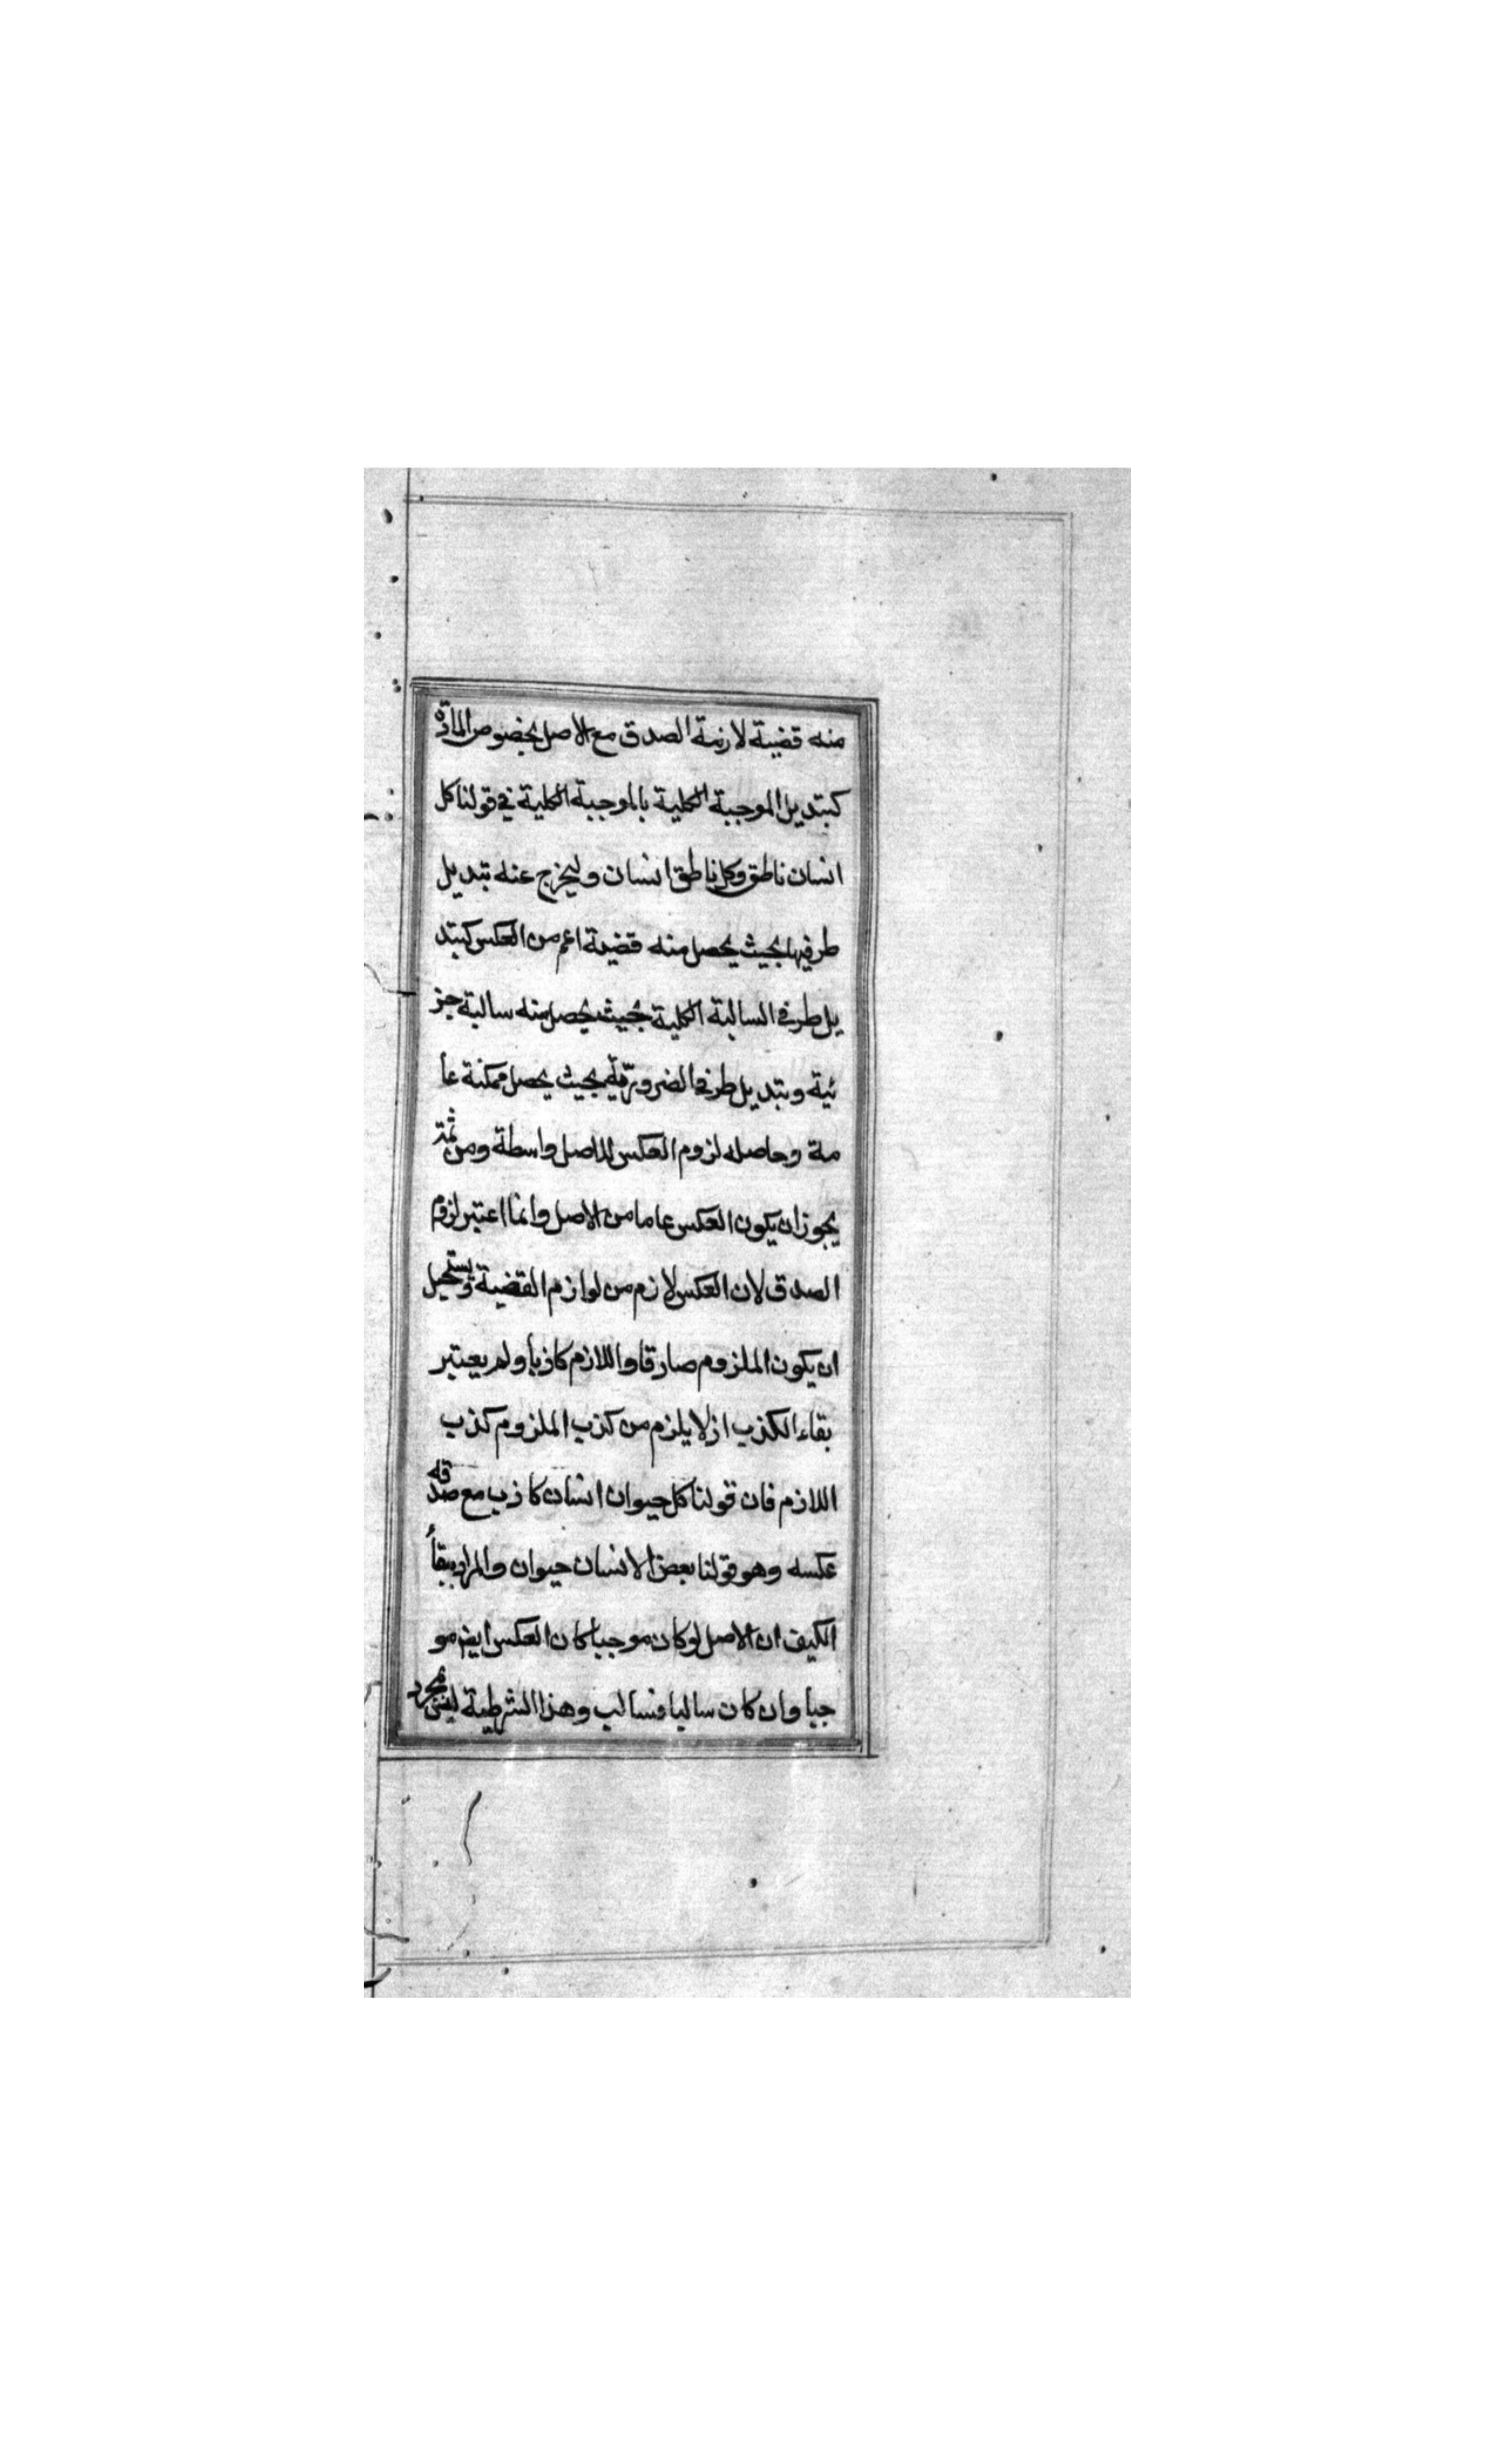 منه قضية لازمة الصدق مع الاصل بخصوص المادة
كتبديل الموجبة الكلية بالموجبة الكلية في قولنا كل
انسان ناطق وكل ناطق انسان وليخرج عنه تبديل
طرفيها بحيث يحصل منه قضية اعم من العكس كتبد
يل طرفي السالبة الكلية بحيث يحصل منه سالبة جز
ئية وتبديل طرفي الضرورية بحيث يحصل ممكنة عا
مة وحاصله لزوم العكس للاصل واسطة ومن ثمة
يجوز ان يكون العكس عاما من الاصل وانما اعتبر لزوم
الصدق لان العكس لازم من لوازم القضية ويستحيل
ان يكون الملزوم صادقا واللازم كاذبا ولم يعتبر
بقاء الكذب اذ لا يلزم من كذب الملزوم كذب
اللازم فان قولنا كل حيوان انسان كاذب مع صدقه
عكسه وهو قولنا بعض الانسان حيوان والمراد ببقأ
الكيف ان الاصل لو كان موجبا كان العكس ايضا مو
جبا وان كان سالبا فسالب وهذا الشرطية ليس بمجرد